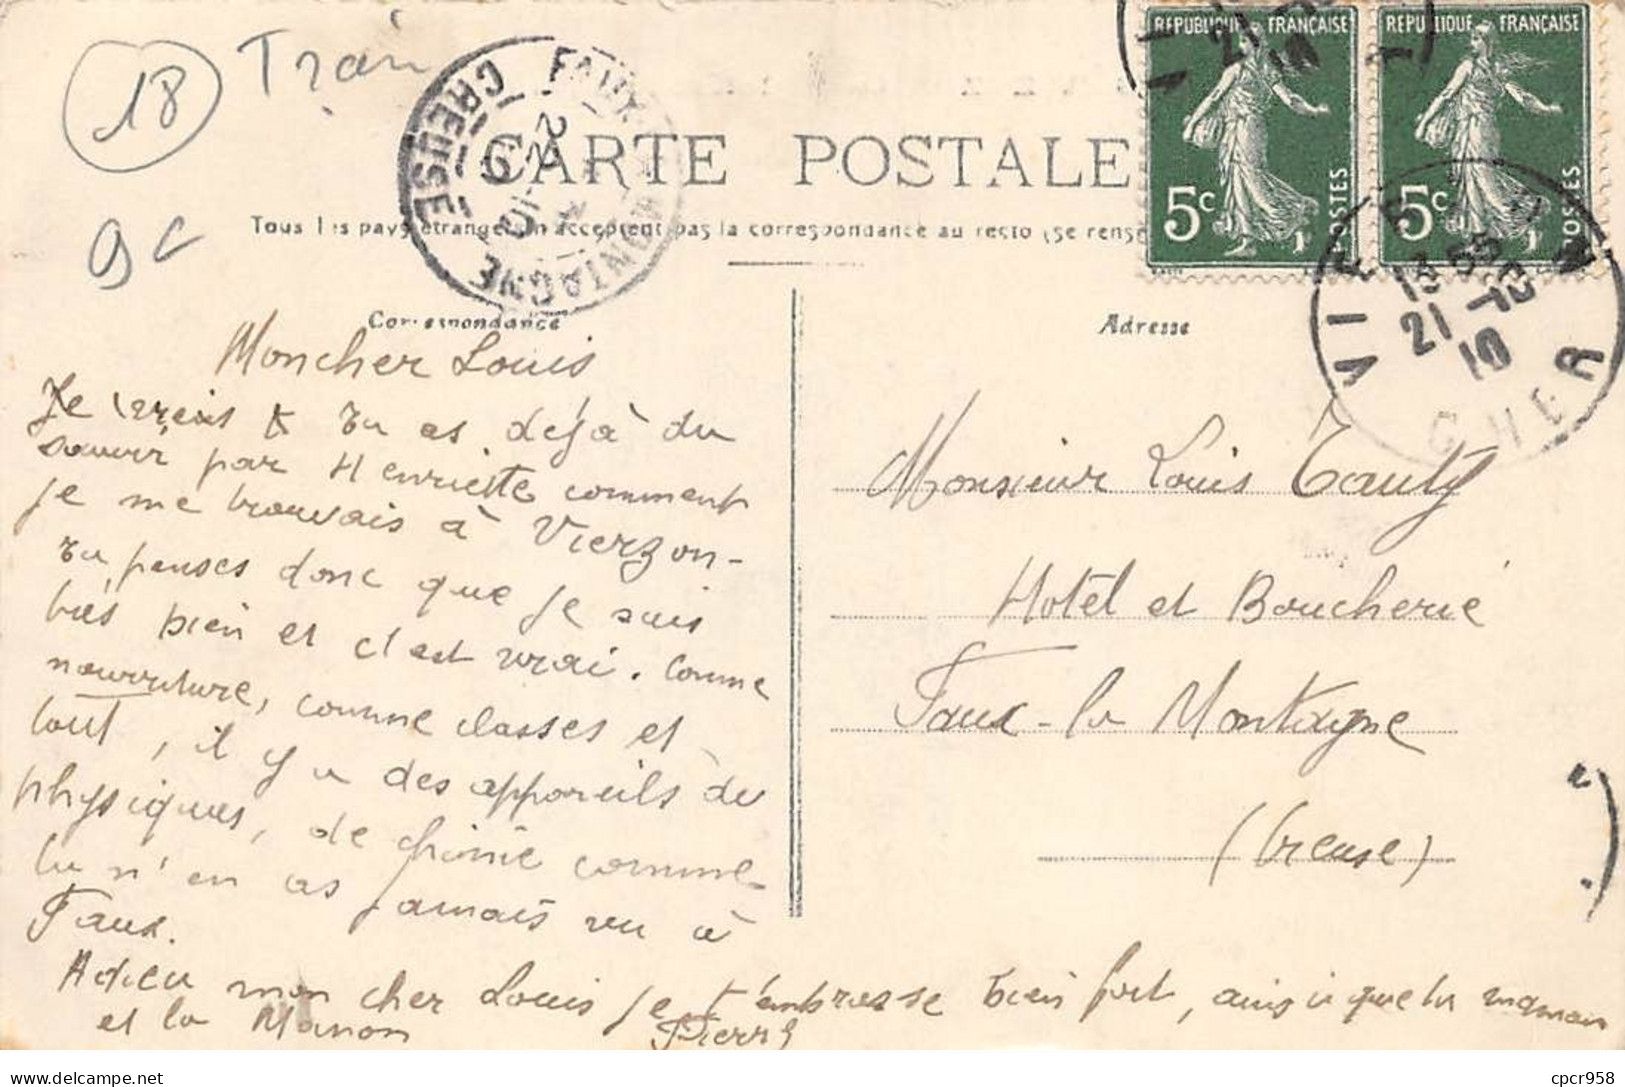 18 Train
9c
CARTE POSTALE
Tous les pays étrangers n'acceptent pas la correspondance au recto (se rense
Correspondance
Adresse
RÉPUBLIQUE FRANÇAISE
5c
POSTES
RÉPUBLIQUE FRANÇAISE
5c
POSTES
FAUX LA MONTAGNE
CREUSE
VIERZON
13 55
21 -10
10
CHER
Mon cher Louis
Je crois tu as déjà du
savoir par Henriette comment
je me trouvais à Vierzon-
tu penses donc que je suis
très bien et c'est vrai. Comme
nourriture, comme classes et
tout, il y a des appareils de
physiques, de chimie comme
tu n'en as jamais vu à
Faux.
Adieu mon cher Louis je t'embrasse bien fort, ainsi que ta maman
et la Manon
Pierre
Monsieur Louis Tauty
Hotel et Boucherie
Faux-la Montagne
(Creuse)
delcampe.net
cpcr958